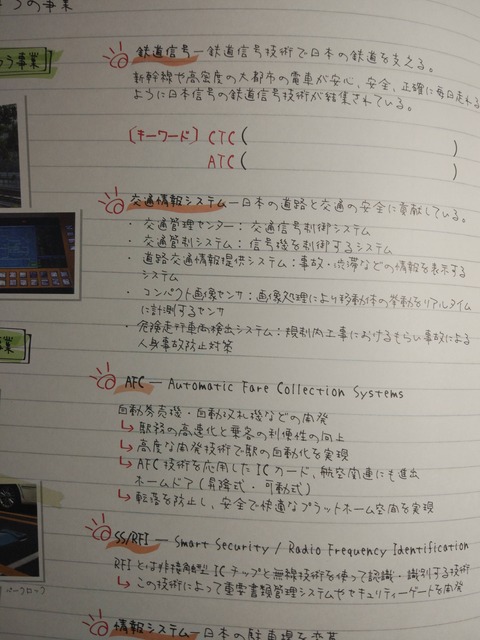 つの事業
う事業
鉄道信号—鉄道信号技術で日本の鉄道を支える。
新幹線や高密度の大都市の電車が安心、安全、正確に毎日走れる
ように日本信号の鉄道信号技術が結集されている。
[キーワード] CTC(                    )
ATC(                    )
交通情報システム—日本の道路と交通の安全に貢献している。
・交通管理センター：交通信号制御システム
・交通管制システム：信号機を制御するシステム
・道路交通情報提供システム：事故・渋滞などの情報を表示する
システム
・コンパクト画像センサ：画像処理により移動体の挙動をリアルタイム
に計測するセンサ
・危険走行車両検出システム：規制内工事におけるもらい事故による
人身事故防止対策
事業
AFC — Automatic Fare Collection Systems
自動券売機・自動改札機などの開発
↳駅務の高速化と乗客の利便性の向上
↳高度な開発技術で駅の自動化を実現
↳AFC技術を応用したICカード、航空関連にも進出
ホームドア(昇降式・可動式)
↳転落を防止し、安全で快適なプラットホーム空間を実現
SS/RFI — Smart Security / Radio Frequency Identification
RFIとは非接触型ICチップと無線技術を使って認識・識別する技術
↳この技術によって重要書類管理システムやセキュリティーゲートを開発
パークロック
情報システム—日本の駐車場を変革